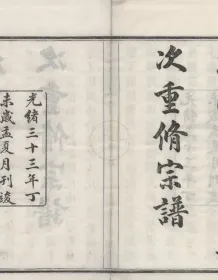 次重脩宗譜
光緒三十三年丁
未歲孟夏月刊竣